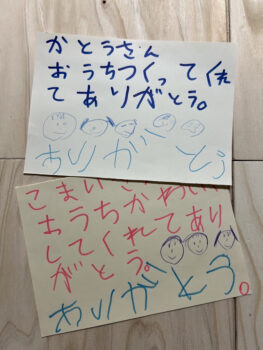 かとうさん
おうちつくってくれ
てありがとう。
ありがとう
こまい
おうちかわい
してくれてあり
がとう。
ありがとう。